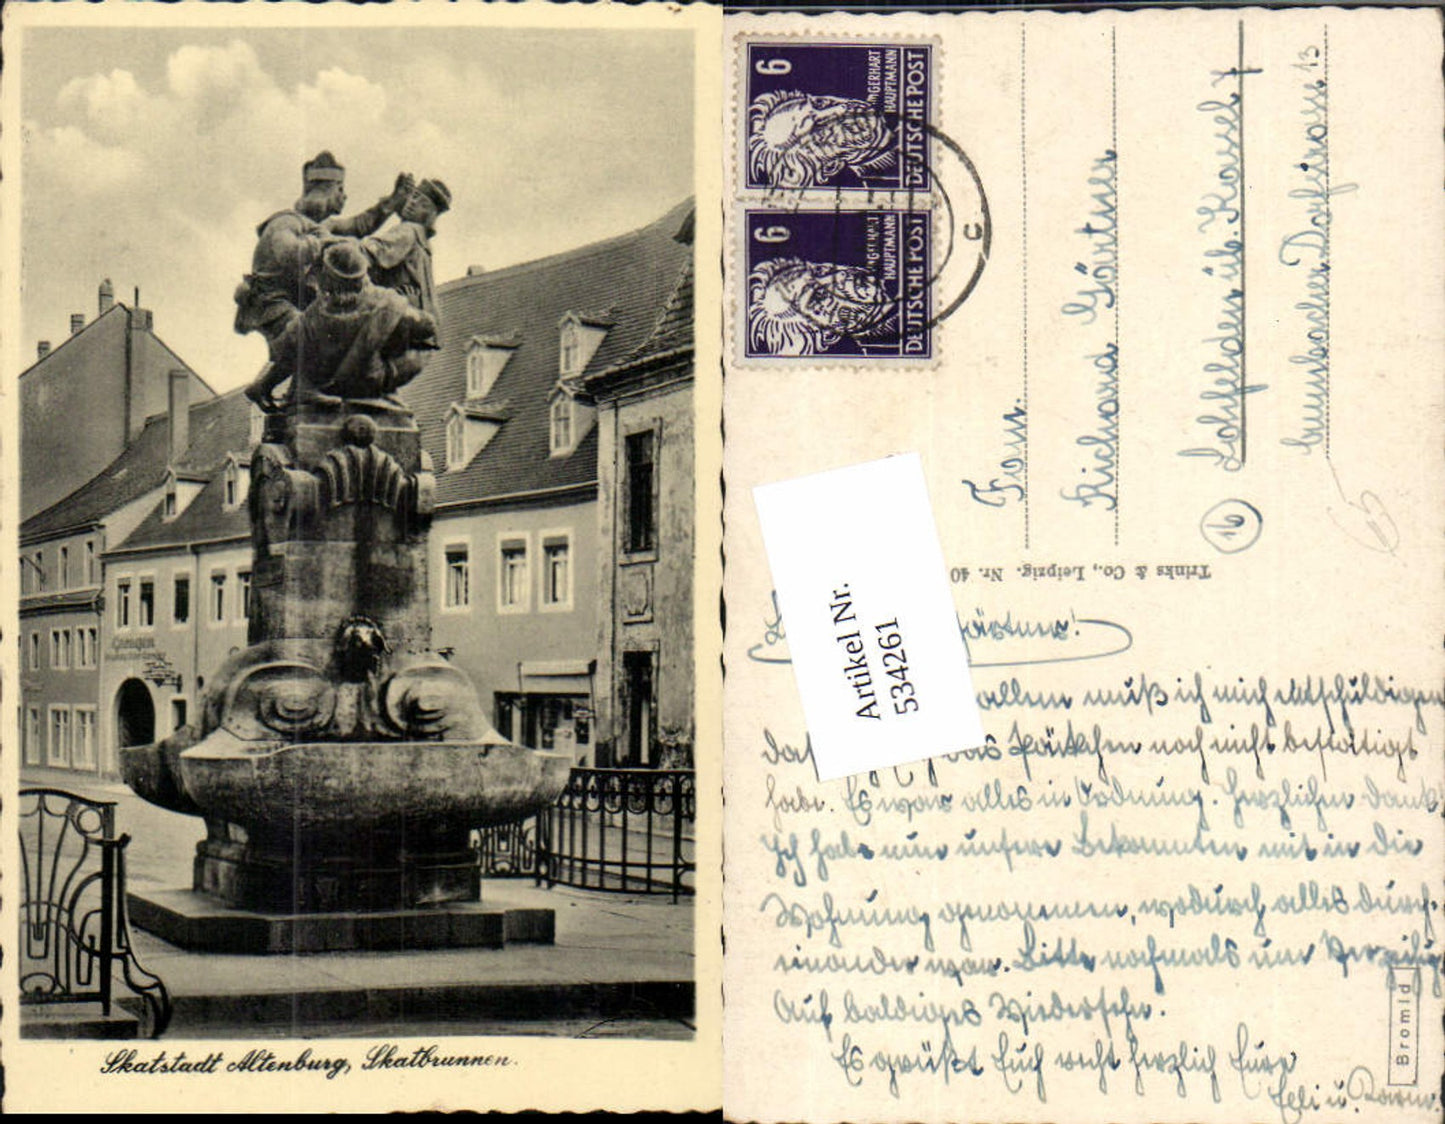 Skatstadt Altenburg, Skatbrunnen.
6
GERHART
HAUPTMANN
DEUTSCHE POST
6
GERHART
HAUPTMANN
DEUTSCHE POST
C
Richard Gärtner
Lohfelden üb. Kassel 7
Crumbacher Dorfstrasse 13
16
Trinks & Co., Leipzig. Nr. 40
Artikel Nr.
534261
ärtner!
allem muß ich mich entschuldigen
das Päckchen noch nicht bestätigt
habe. Es war alles in Ordnung. Herzlichen Dank!
Ich habe nun unsere Bekannten mit in die
Wohnung genommen, wodurch alles durch-
einander war. Bitte nochmals um Verzeihg.
Auf baldiges Wiedersehn.
Es grüßt Euch recht herzlich Eure
Bromid